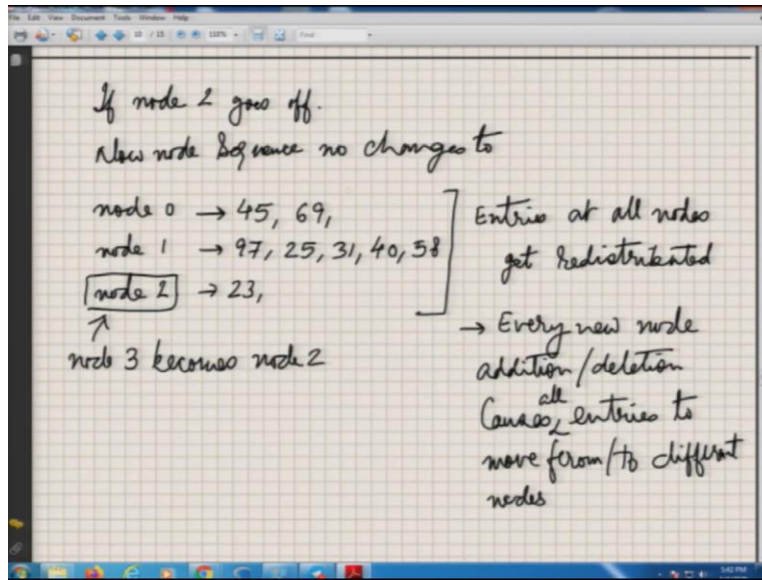 File Edit View Document Tools Window Help
10 / 15 110% Find
If node 2 goes off.
Now node Sequence no changes to
node 0 → 45, 69,
node 1 → 97, 25, 31, 40, 58
node 2 → 23,
node 3 becomes node 2
Entries at all nodes
get redistributed
→ Every new node
addition/deletion
Causes all entries to
move from/to different
nodes
5:42 PM